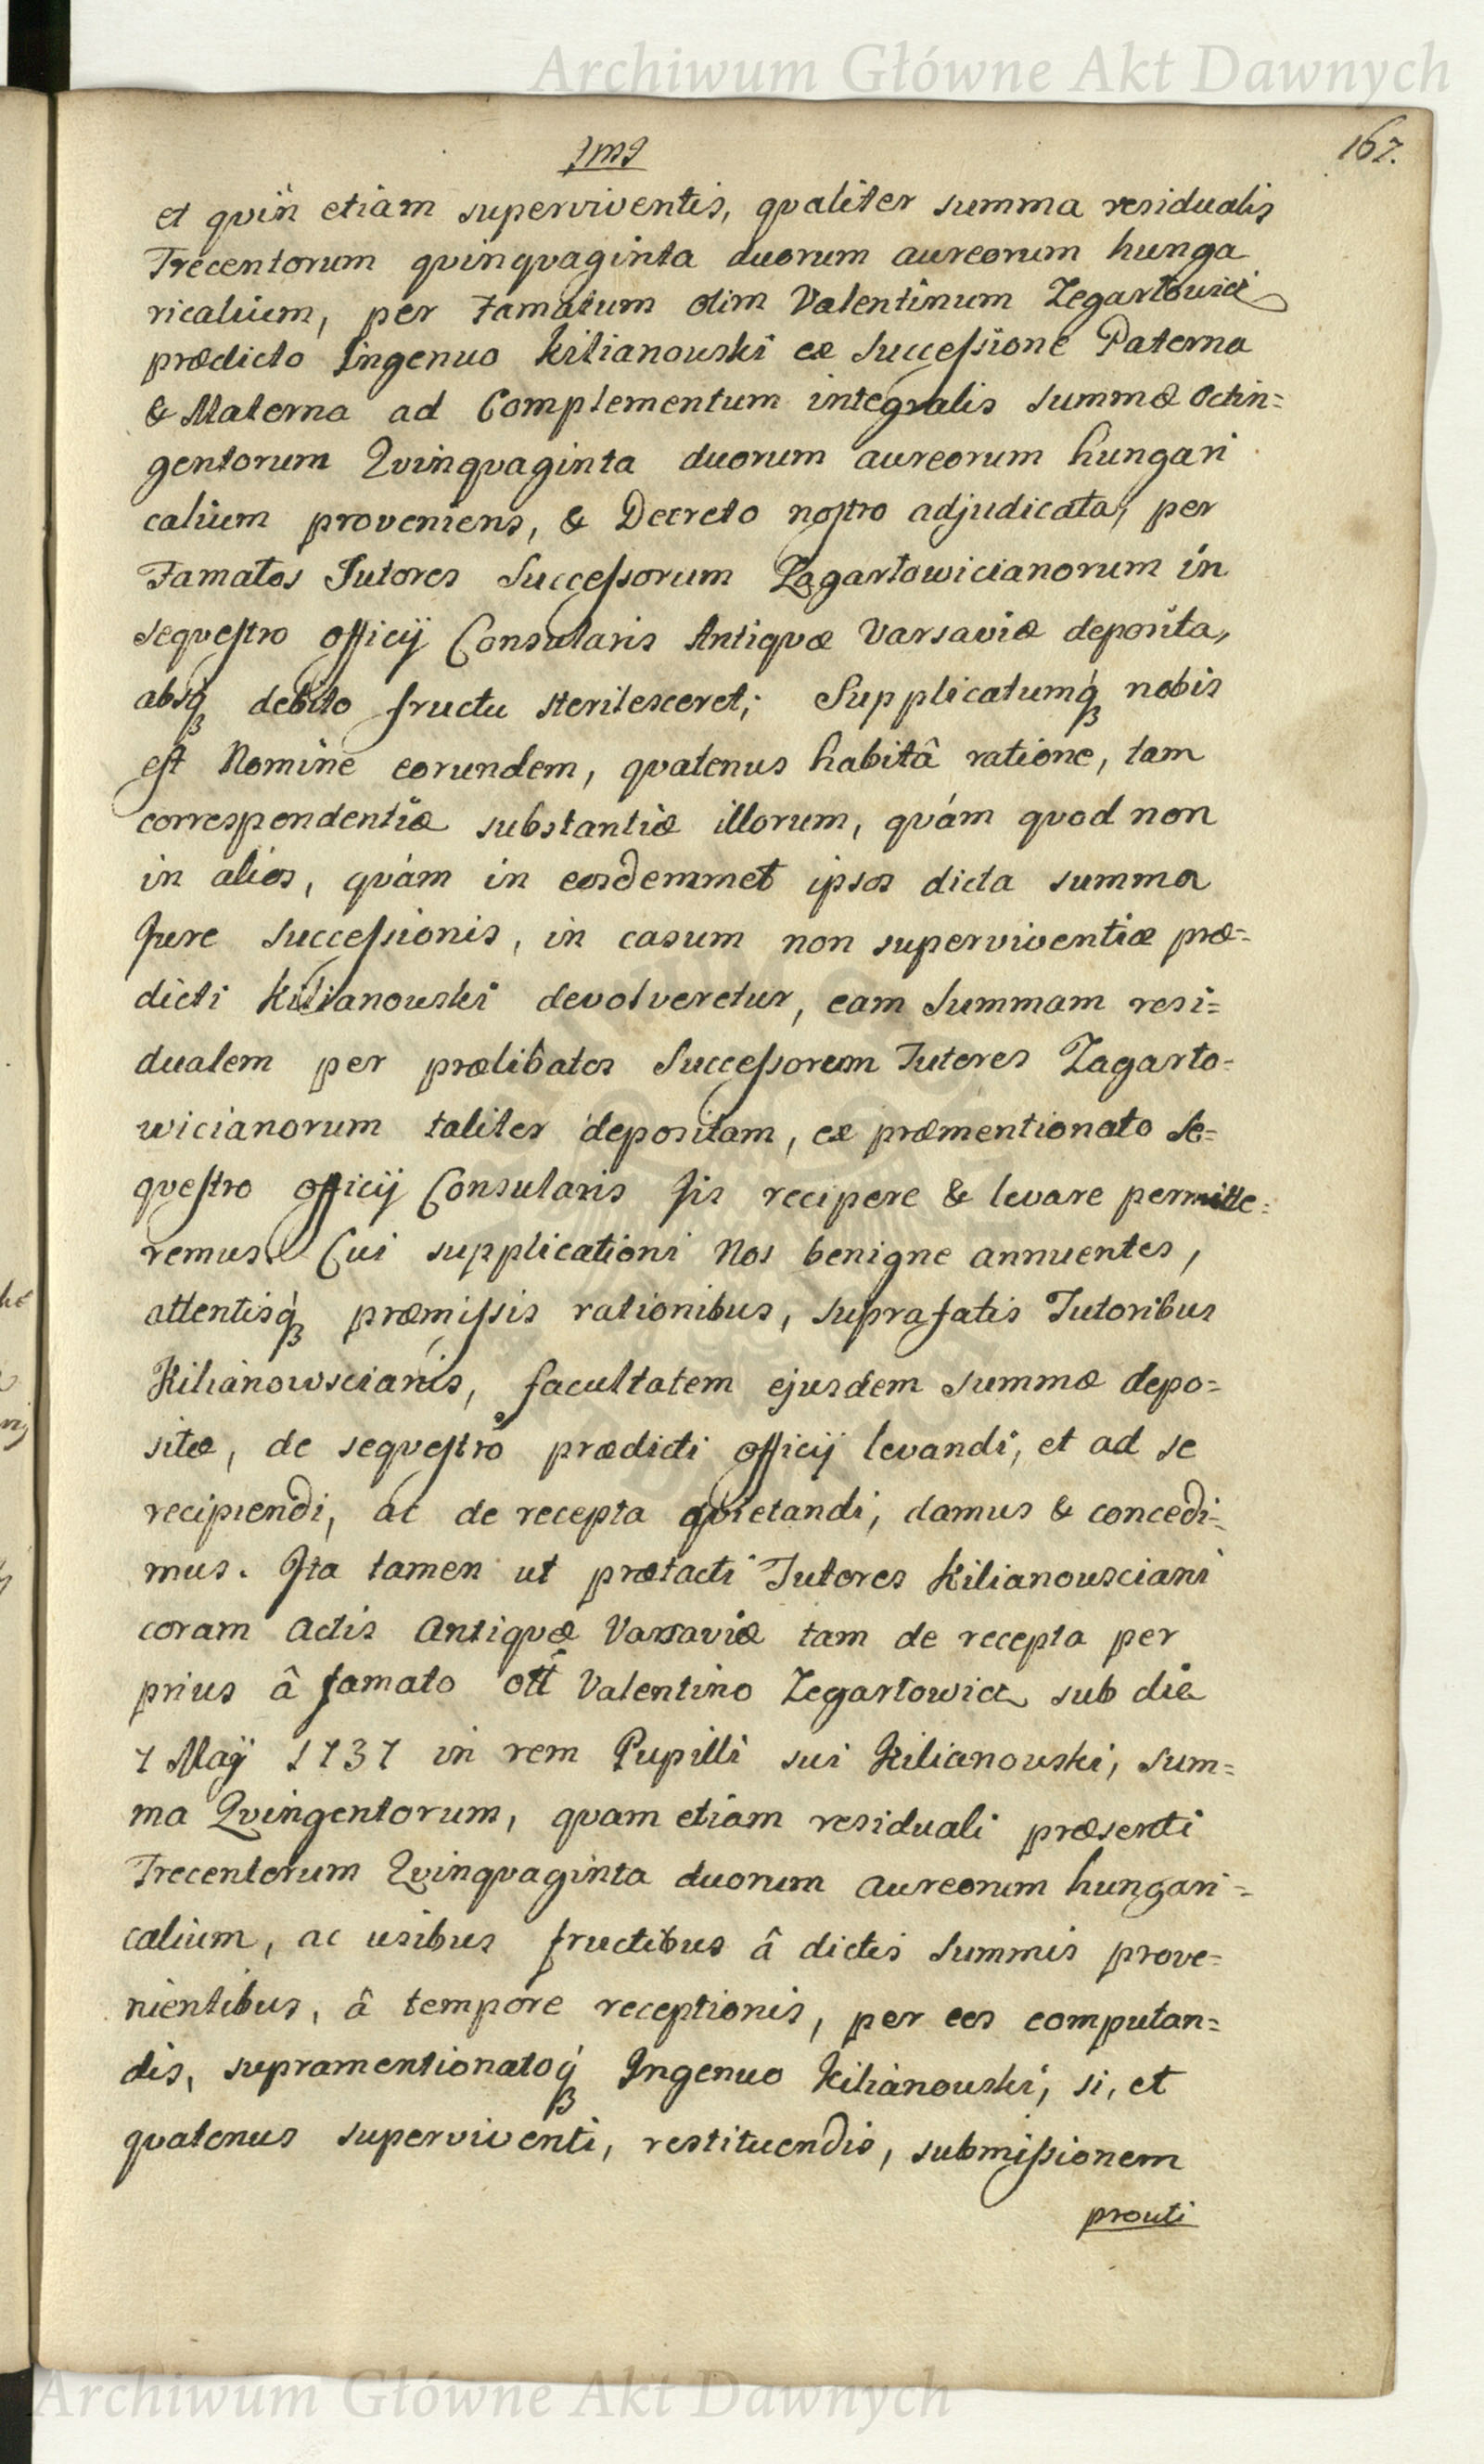 Archiwum Główne Akt Dawnych
167.
et qvin etiam superviventis, qvaliter summa residualis
Trecentorum qvinqvaginta duorum aureorum hunga
ricalium, per Famatum olim Valentinum Zegartowicz
prædicto Ingenuo Kilianowski ex Successione Paterna
& Materna ad Complementum integralis summæ Octin=
gentorum Qvinqvaginta duorum aureorum hungari
calium proveniens, & Decreto nostro adjudicata, per
Famatos Tutores Successorum Zagartowicianorum in
seqvestro officij Consularis Antiqvæ Varsaviæ deposita,
absq́ꝫ debito fructu sterilesceret; Supplicatumq́ꝫ nobis
est Nomine eorundem, qvatenus habitâ ratione, tam
correspondentiæ substantiæ illorum, qvám qvod non
in alios, qvám in eosdemmet ipsos dicta summa
Jure Successionis, in casum non superviventiæ præ=
dicti Kilianowski devolveretur, eam Summam resi=
dualem per prælibatos Successorum Tutores Zagarto=
wicianorum taliter depositam, ex præmentionato Se=
qvestro officij Consularis sis recipere & levare permitte=
remus. Cui supplicationi Nos benigne annuentes,
attentisq́ꝫ præmissis rationibus, suprafatis Tutoribus
Kilianowscianis, facultatem ejusdem Summæ depo=
sitæ, de seqvestro prædicti officij levandi, et ad se
recipiendi, ac de recepta qvietandi, damus & concedi=
mus. Ita tamen ut prætacti Tutores Kilianowsciani
coram Actis Antiqvæ Varsaviæ tam de recepta per
prius â famato olî Valentino Zegartowicz sub die
7 Maÿ 1737 in rem Pupilli sui Kilianowski, Sum=
ma Qvingentorum, qvam etiam residuali præsenti
Trecentorum Qvinqvaginta duorum aureorum hungari=
calium, ac usibus fructibus â dictis Summis prove=
nientibus, â tempore receptionis, per eos computan=
dis, supramentionatoq́ꝫ Ingenuo Kilianowski, si, et
qvatenus superviventi, restituendis, submissionem
prouti
Archiwum Główne Akt Dawnych